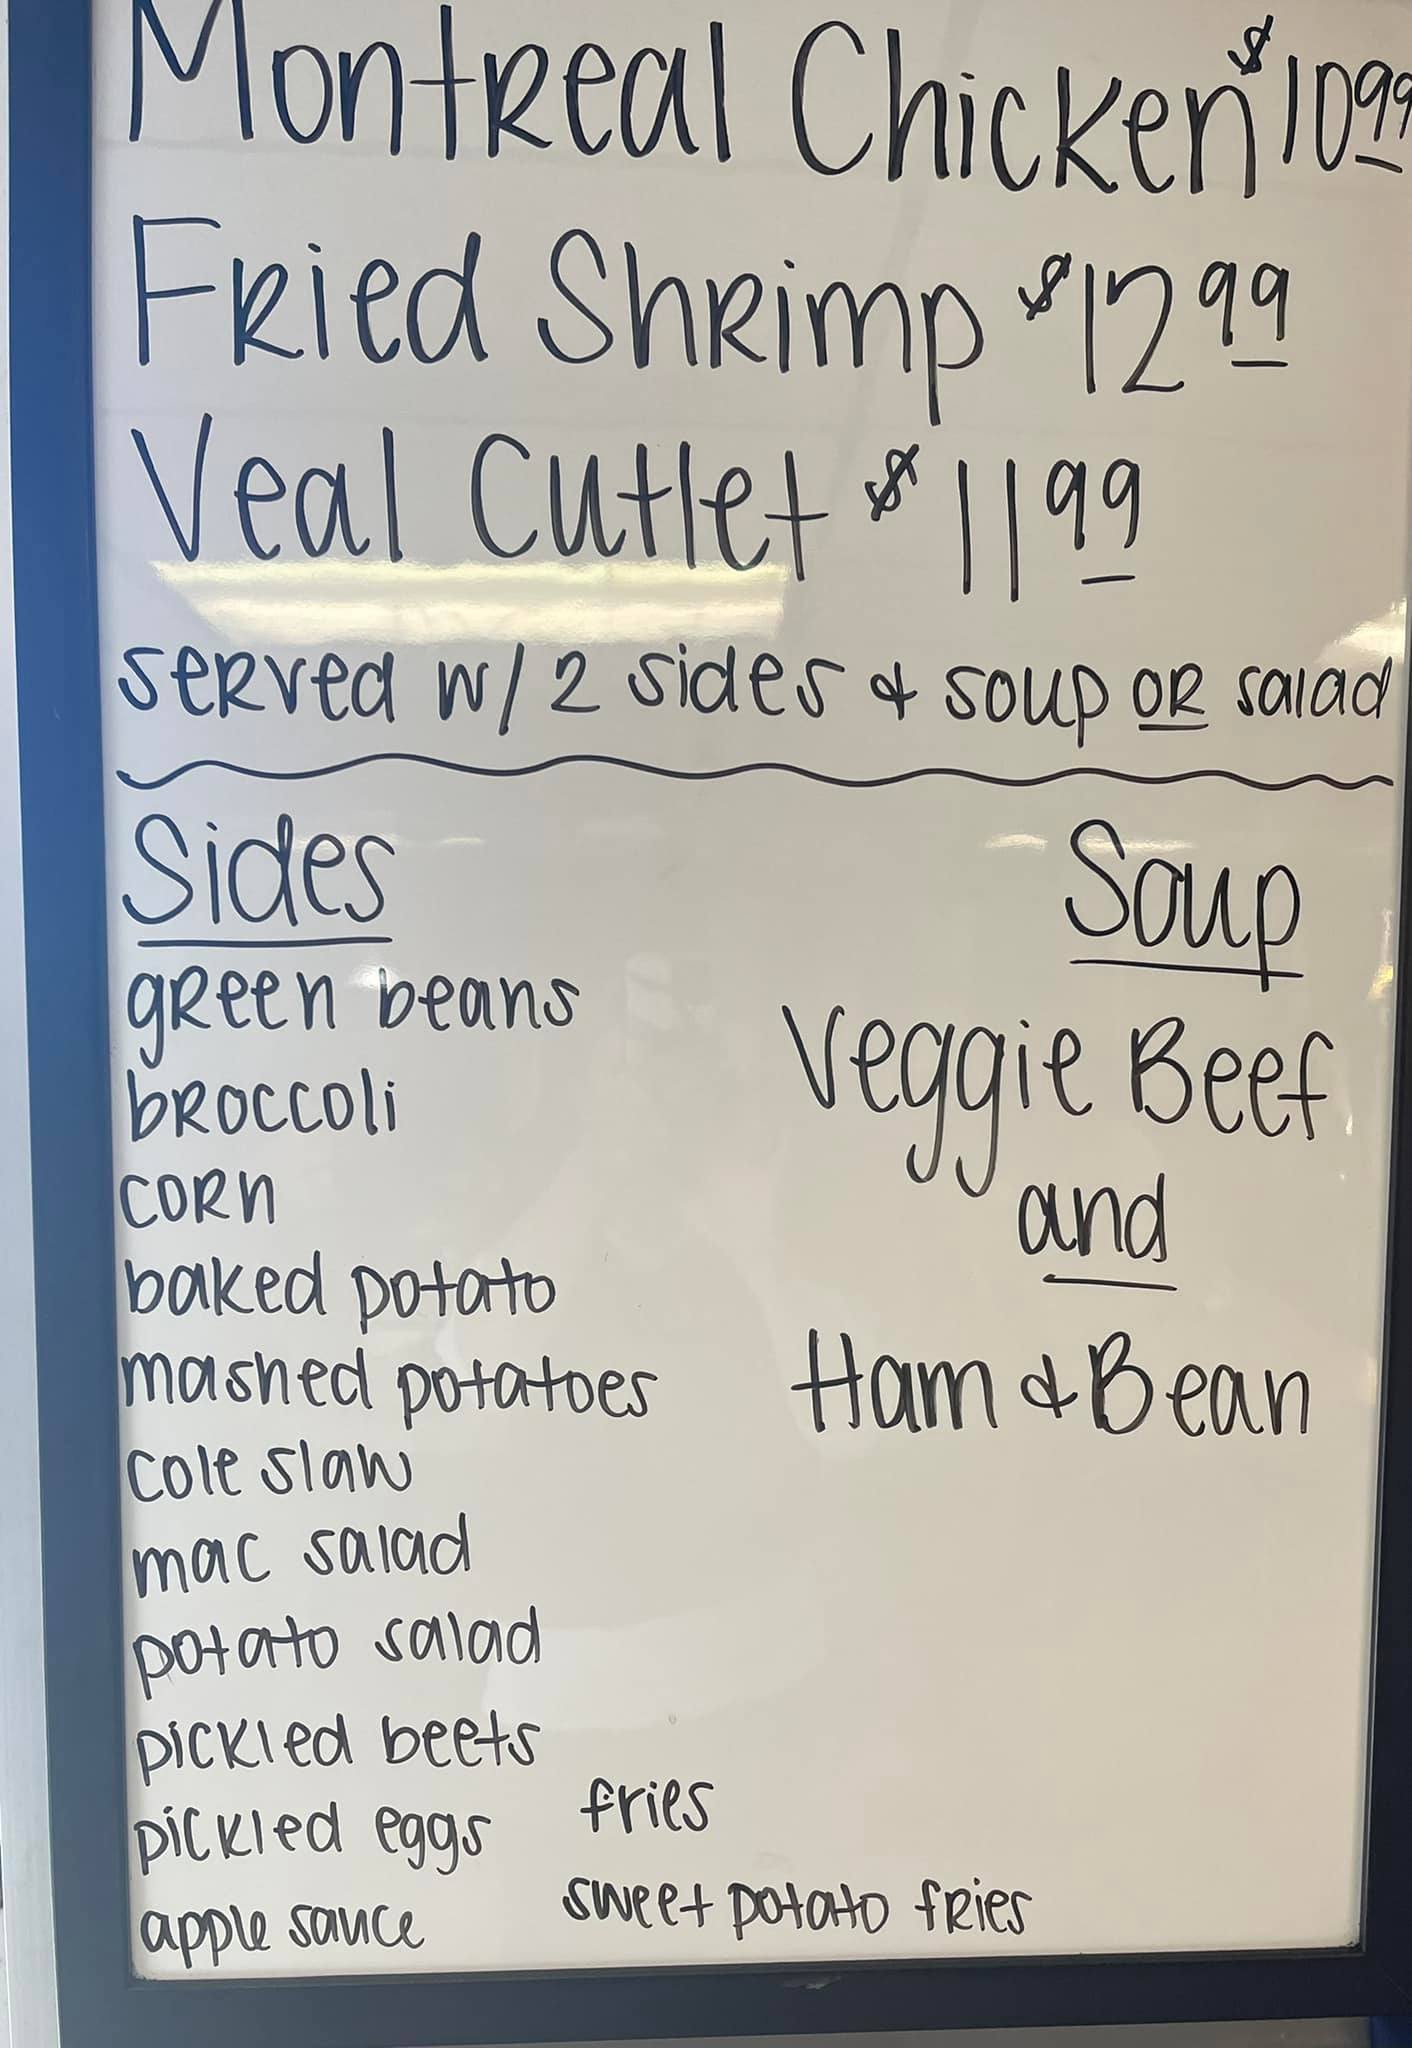 Montreal Chicken $10.99
Fried Shrimp $12.99
Veal Cutlet $11.99
served w/ 2 sides & soup or salad
Sides
green beans
broccoli
corn
baked potato
mashed potatoes
cole slaw
mac salad
potato salad
pickled beets
pickled eggs
apple sauce
fries
sweet potato fries
Soup
Veggie Beef
and
Ham & Bean